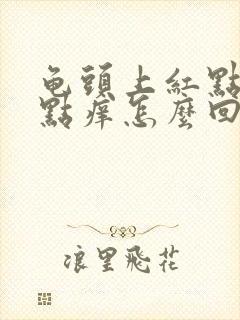 龟頭上紅點
點癢怎麼回
浪里飛花